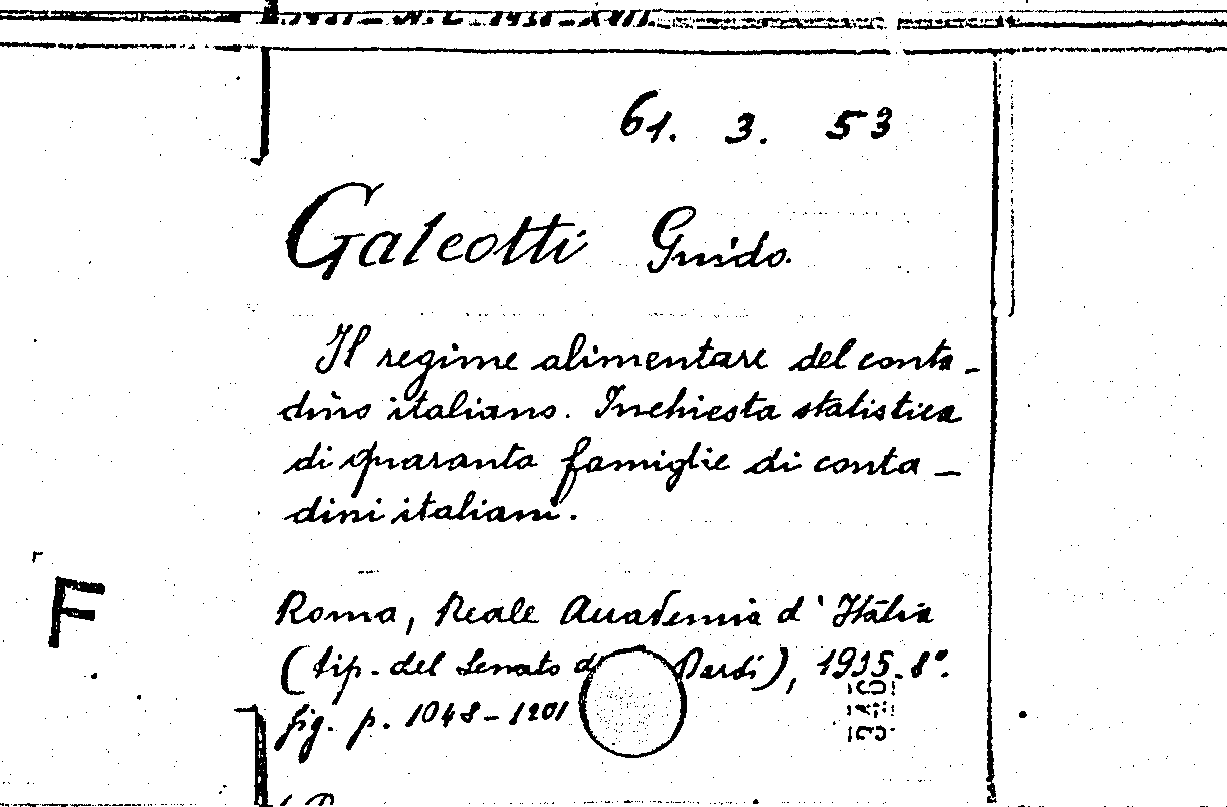 61. 3. 53
Galeotti Guido.
Il regime alimentare del conta-
dino italiano. Inchiesta statistica
di quaranta famiglie di conta-
dini italiani.
F
Roma, Reale Accademia d'Italia
(tip. del Senato Bardi), 1935. 8°.
fig. p. 1048-1201